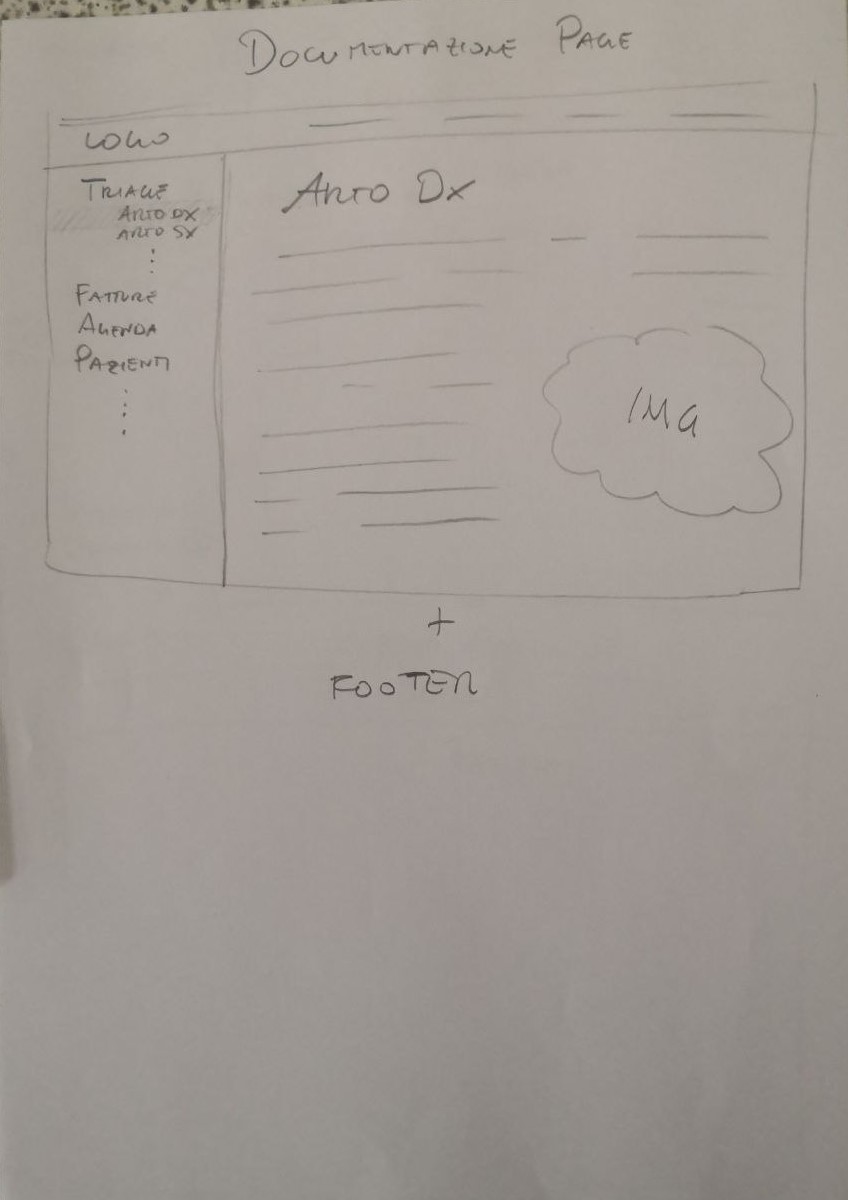 DOCUMENTAZIONE PAGE
LOGO
TRIAGE
ARTO DX
ARTO SX
FATTURE
AGENDA
PAZIENTI
ARTO DX
IMG
+
FOOTER